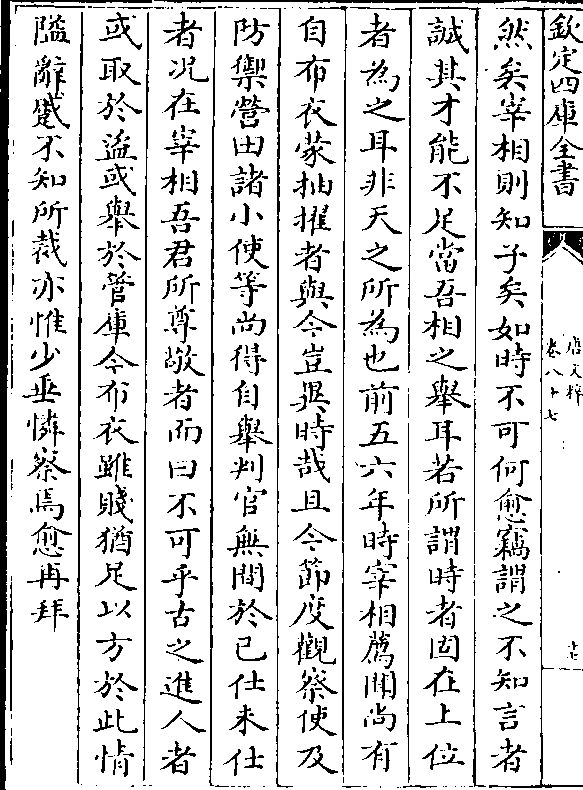 欽定四庫全書
唐文粹
卷八十七
十七
然矣宰相則知子矣如時不可何愈竊謂之不知言者
誠其才能不足當吾相之舉耳若所謂時者固在上位
者為之耳非天之所為也前五六年時宰相薦聞尚有
自布衣蒙抽擢者與今豈異時哉且今節度觀察使及
防禦營田諸小使等尚得自舉判官無閒於已仕未仕
者况在宰相吾君所尊敬者而曰不可乎古之進人者
或取於盜或舉於管庫今布衣雖賤猶足以方於此情
隘辭蹙不知所裁亦惟少垂憐察焉愈再拜